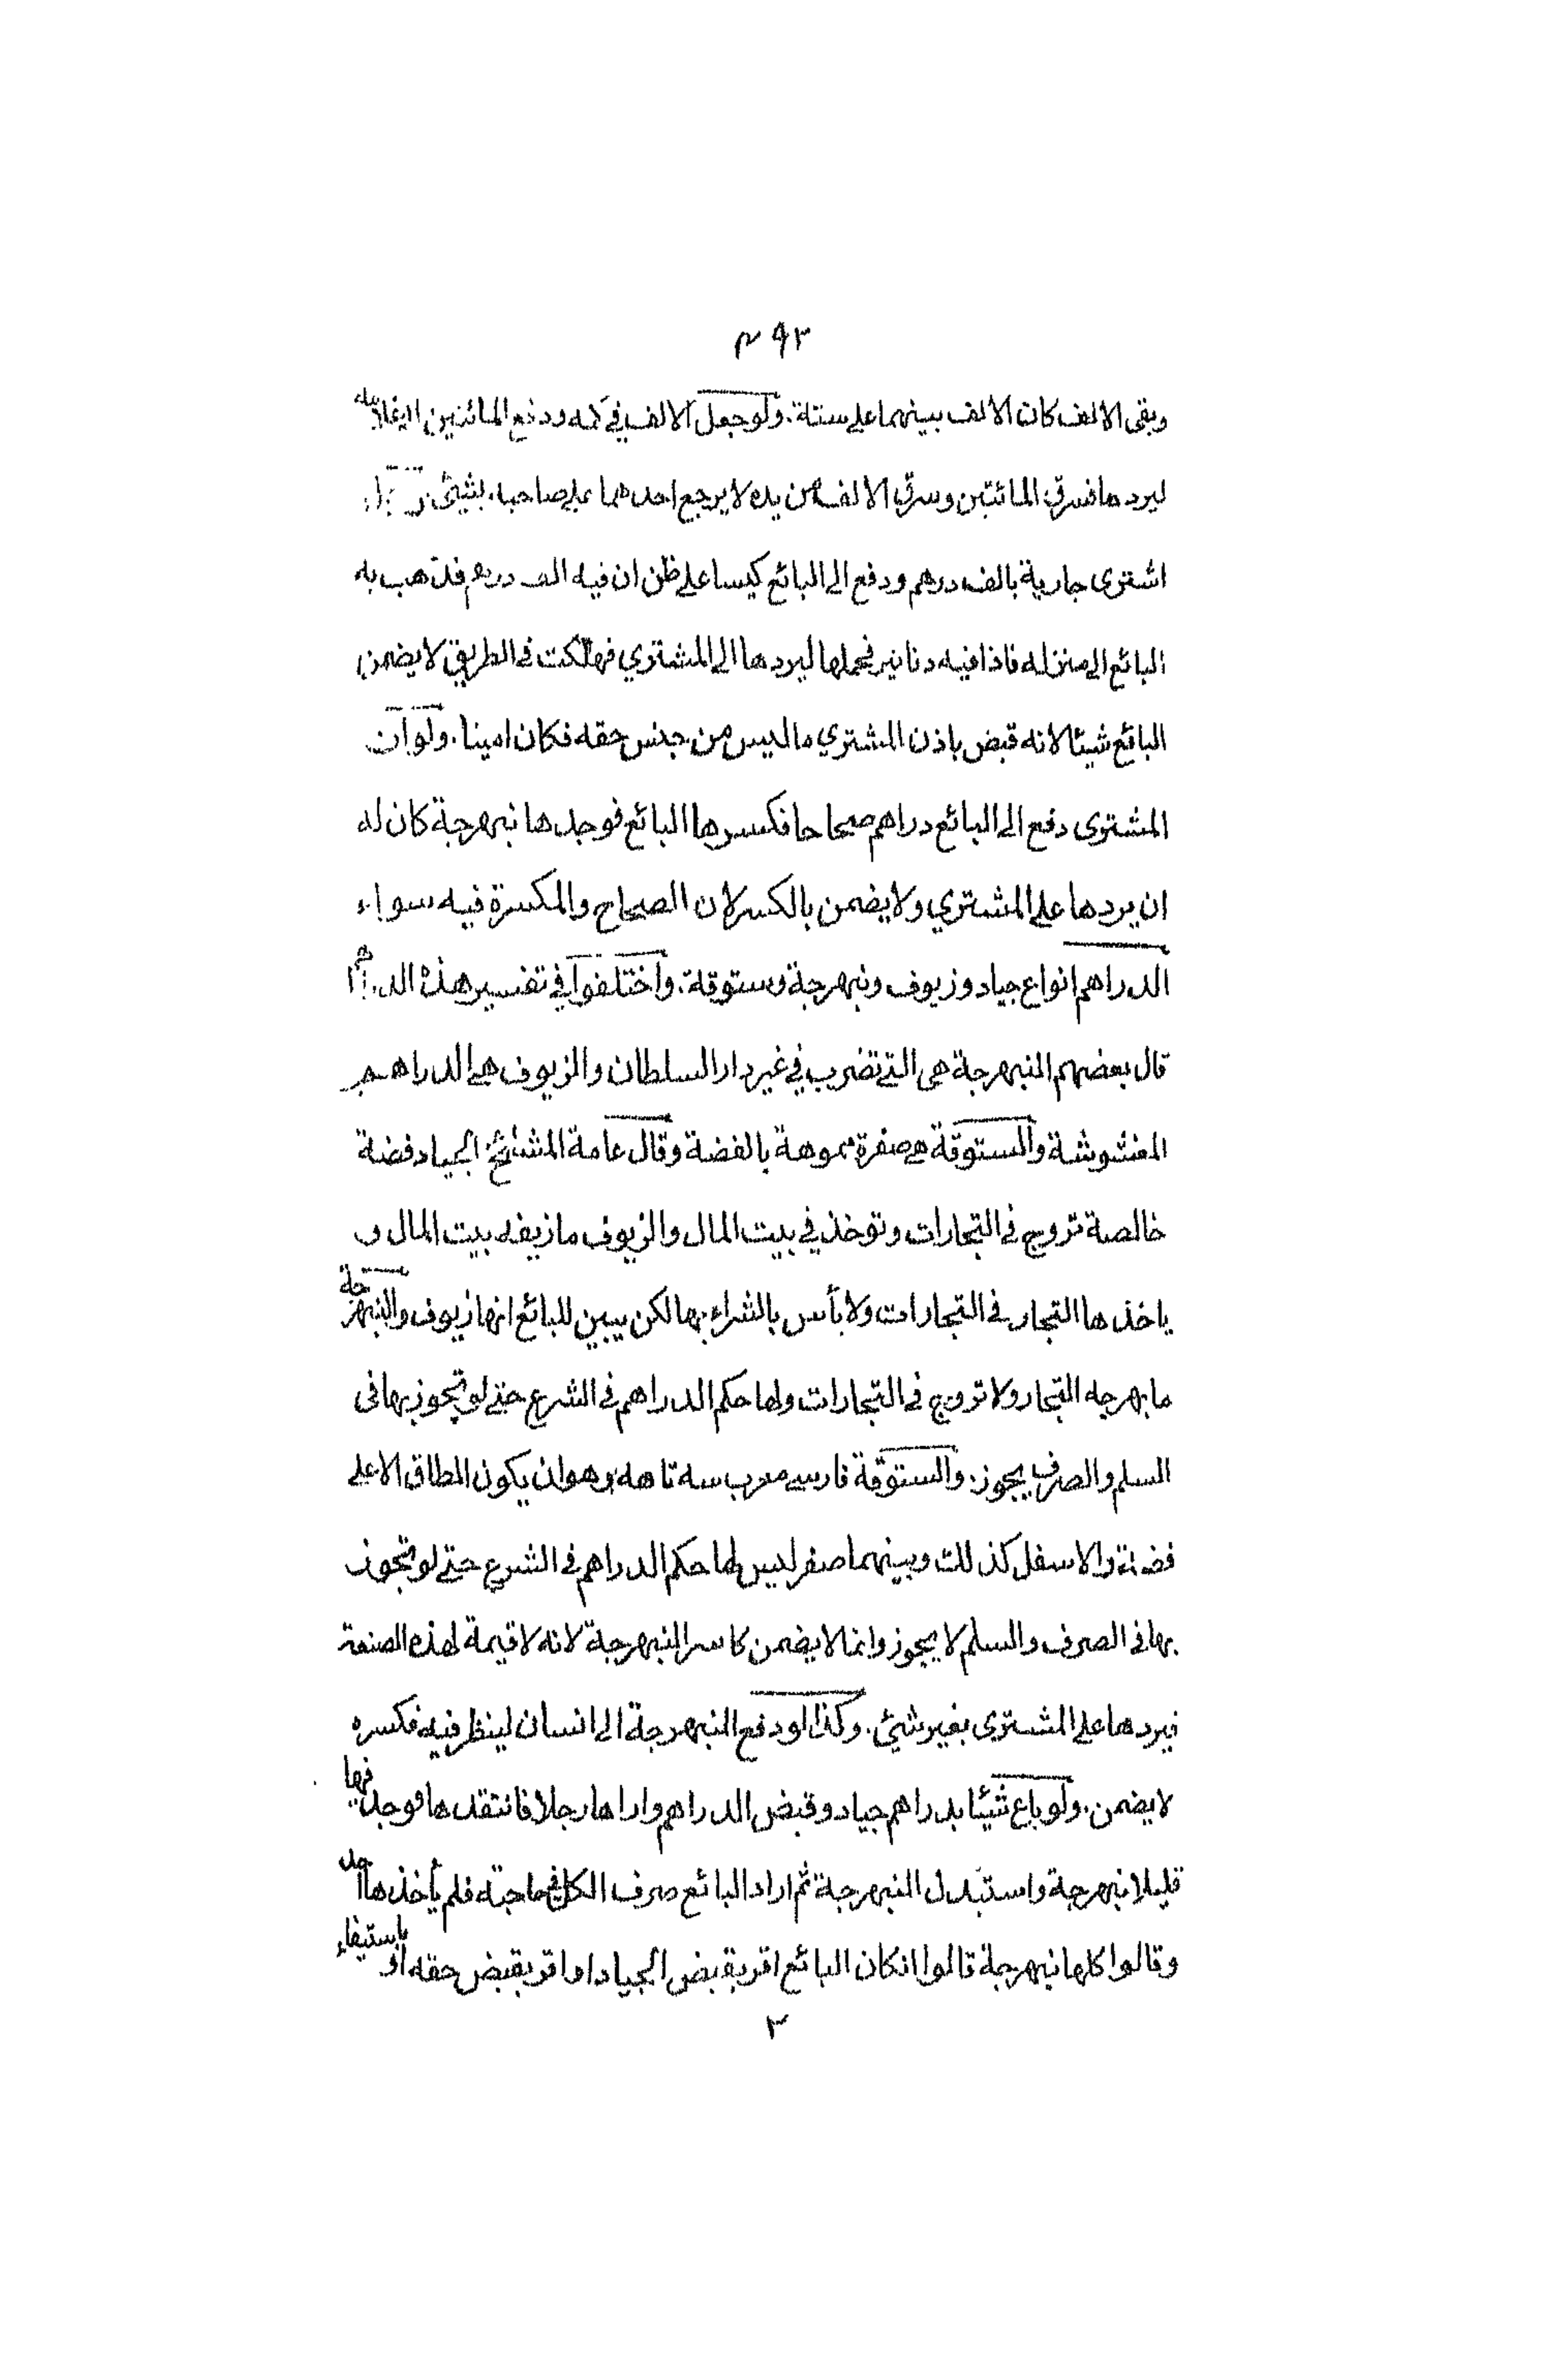 ٤٩٣
وبقى الالف كان الالف بينهما على ستة. ولو جعل الالف في كمه ودفع المائتين الى غلامه
ليردها فسرق المائتين وسرق الالف من يده لا يرجع احدهما على صاحبه بشيئ
اشترى جارية بالف درهم ودفع الى البائع كيسا على ظن ان فيه الف درهم فذهب به
البائع الى منزله فاذا فيه دنانير فحملها ليردها الى المشتري فهلكت في الطريق لا يضمن
البائع شيئا لانه قبض باذن المشتري ما ليس من جنس حقه فكان امينا. ولو ان
المشترى دفع الى البائع دراهم صحاحا فكسرها البائع فوجدها نبهرجة كان له
ان يردها على المشتري ولا يضمن بالكسر لان الصحاح والمكسرة فيه سواء
الدراهم انواع جياد وزيوف ونبهرجة وستوقة. واختلفوا في تفسير هذه الدراهم
قال بعضهم النبهرجة هي التي تضرب في غير دار السلطان والزيوف هي الدراهم
المغشوشة والستوقة هي صفرة مموهة بالفضة وقال عامة المشائخ الجياد فضة
خالصة تروج في التجارات وتوخذ في بيت المال والزيوف ما زيفه بيت المال و
ياخذها التجار في التجارات ولا بأس بالشراء بها لكن يبين للبائع انها زيوف والنبهرجة
ما بهرجه التجار ولا تروج في التجارات ولها حكم الدراهم في الشرع حتى لو تجوز بها فى
السلم والصرف يجوز. والستوقة فارسي معرب سه تاهه وهو ان يكون الطاق الاعلى
فضة والاسفل كذلك وبينهما صفر ليس لها حكم الدراهم في الشرع حتى لو تجوز
بها فى الصرف والسلم لا يجوز وانما لا يضمن كاسر النبهرجة لانه لا قيمة لهذه الصنعة
فيردها على المشترى بغير شيئ. وكذا لو دفع النبهرجة الى انسان لينظر فيه فكسره
لا يضمن. ولو باع شيئا بدراهم جياد وقبض الدراهم واراها رجلا فانتقدها فوجد فيها
قليلا نبهرجة واستبدل النبهرجة ثم اراد البائع صرف الكل في حاجته فلم يأخذها احد
وقالوا كلها نبهرجة قالوا ان كان البائع اقر بقبض الجياد او اقر بقبض حقه او باستيفاء
٣